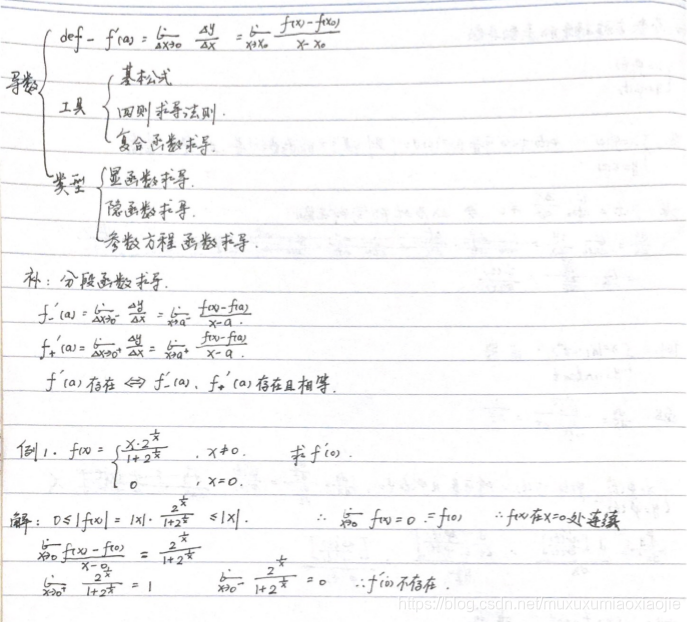 导数
def - f'(a) = lim Δx→0 Δy/Δx = lim x→x₀ (f(x)-f(x₀))/(x-x₀)
工具
基本公式
四则求导法则.
复合函数求导.
类型
显函数求导.
隐函数求导.
参数方程函数求导.
补: 分段函数求导.
f₋'(a) = lim Δx→0⁻ Δy/Δx = lim x→a⁻ (f(x)-f(a))/(x-a).
f₊'(a) = lim Δx→0⁺ Δy/Δx = lim x→a⁺ (f(x)-f(a))/(x-a).
f'(a) 存在 ⇔ f₋'(a)、f₊'(a) 存在且相等.
例1. f(x) = { x·2^(1/x)/(1+2^(1/x)) , x≠0. 求 f'(0).
0 , x=0.
解: 0≤|f(x)| = |x|· 2^(1/x)/(1+2^(1/x)) ≤|x|. ∴ lim x→0 f(x)=0 .=f(0) ∴f(x)在x=0处连续
lim x→0 (f(x)-f(0))/(x-0) = 2^(1/x)/(1+2^(1/x))
lim x→0⁺ 2^(1/x)/(1+2^(1/x)) = 1 lim x→0⁻ 2^(1/x)/(1+2^(1/x)) = 0 ∴f'(0)不存在.
https://blog.csdn.net/muxuxumiaoxiaojie